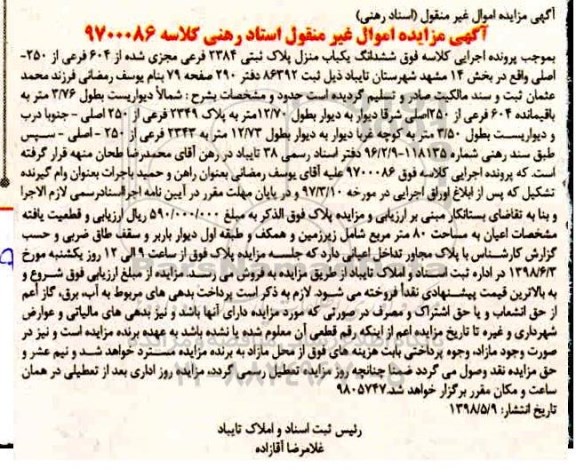 آگهی مزایده اموال غیر منقول (اسناد رهنی)
آگهی مزایده اموال غیر منقول اسناد رهنی کلاسه ۹۷۰۰۰۸۶
بموجب پرونده اجرایی کلاسه فوق ششدانگ یکباب منزل پلاک ثبتی ۲۳۸۴ فرعی مجزی شده از ۶۰۴ فرعی از ۲۵۰-
اصلی واقع در بخش ۱۴ مشهد شهرستان تایباد ذیل ثبت ۸۶۳۹۲ دفتر ۲۹۰ صفحه ۷۹ بنام یوسف رمضانی فرزند محمد
عثمان ثبت و سند مالکیت صادر و تسلیم گردیده است حدود و مشخصات بشرح : شمالاً دیواریست بطول ۳/۷۶ متر به
باقیمانده ۶۰۴ فرعی از ۲۵۰اصلی شرقا دیوار به دیوار بطول ۱۲/۷۰متر به پلاک ۲۳۴۹ فرعی از ۲۵۰ اصلی - جنوبا درب
و دیواریست بطول ۳/۵۰ متر به کوچه غربا دیوار به دیوار بطول ۱۲/۷۳ متر به ۲۳۴۳ فرعی از ۲۵۰ - اصلی - سپس
طبق سند رهنی شماره ۱۱۸۱۳۵-۹۶/۲/۹ دفتر اسناد رسمی ۳۸ تایباد در رهن آقای محمدرضا طحان منهه قرار گرفته
است. که پرونده اجرایی کلاسه فوق ۹۷۰۰۰۸۶ علیه آقای یوسف رمضانی بعنوان راهن و حمید باجرات بعنوان وام گیرنده
تشکیل که پس از ابلاغ اوراق اجرایی در مورخه ۹۷/۳/۱۰ و در پایان مهلت مقرر در آیین نامه اجرااسنادرسمی لازم الاجرا
و بنا به تقاضای بستانکار مبنی بر ارزیابی و مزایده پلاک فوق الذکر به مبلغ ۵۹۰/۰۰۰/۰۰۰ ریال ارزیابی و قطعیت یافته
مشخصات اعیان به مساحت ۸۰ متر مربع شامل زیرزمین و همکف و طبقه اول دیوار باربر و سقف طاق ضربی و حسب
گزارش کارشناس با پلاک مجاور تداخل اعیانی دارد که جلسه مزایده پلاک فوق از ساعت ۹ الی ۱۲ روز یکشنبه مورخ
۱۳۹۸/۶/۳ در اداره ثبت اسناد و املاک تایباد از طریق مزایده به فروش می رسد. مزایده از مبلغ ارزیابی فوق شروع و
به بالاترین قیمت پیشنهادی نقداً فروخته می شود. لازم به ذکر است پرداخت بدهی های مربوط به آب، برق، گاز أعم
از حق انشعاب و یا حق اشتراک و مصرف در صورتی که مورد مزایده دارای آنها باشد و نیز بدهی های مالیاتی و عوارض
شهرداری و غیره تا تاریخ مزایده اعم از اینکه رقم قطعی آن معلوم شده یا نشده باشد به عهده برنده مزایده است و نیز در
صورت وجود مازاد، وجوه پرداختی بابت هزینه های فوق از محل مازاد به برنده مزایده مسترد خواهد شد و نیم عشر و
حق مزایده نقد وصول می گردد ضمنا چنانچه روز مزایده تعطیل رسمی گردد، مزایده روز اداری بعد از تعطیلی در همان
ساعت و مکان مقرر برگزار خواهد شد.۹۸۰۵۷۴۷
تاریخ انتشار: ۱۳۹۸/۵/۹
رئیس ثبت اسناد و املاک تایباد
غلامرضا آقازاده